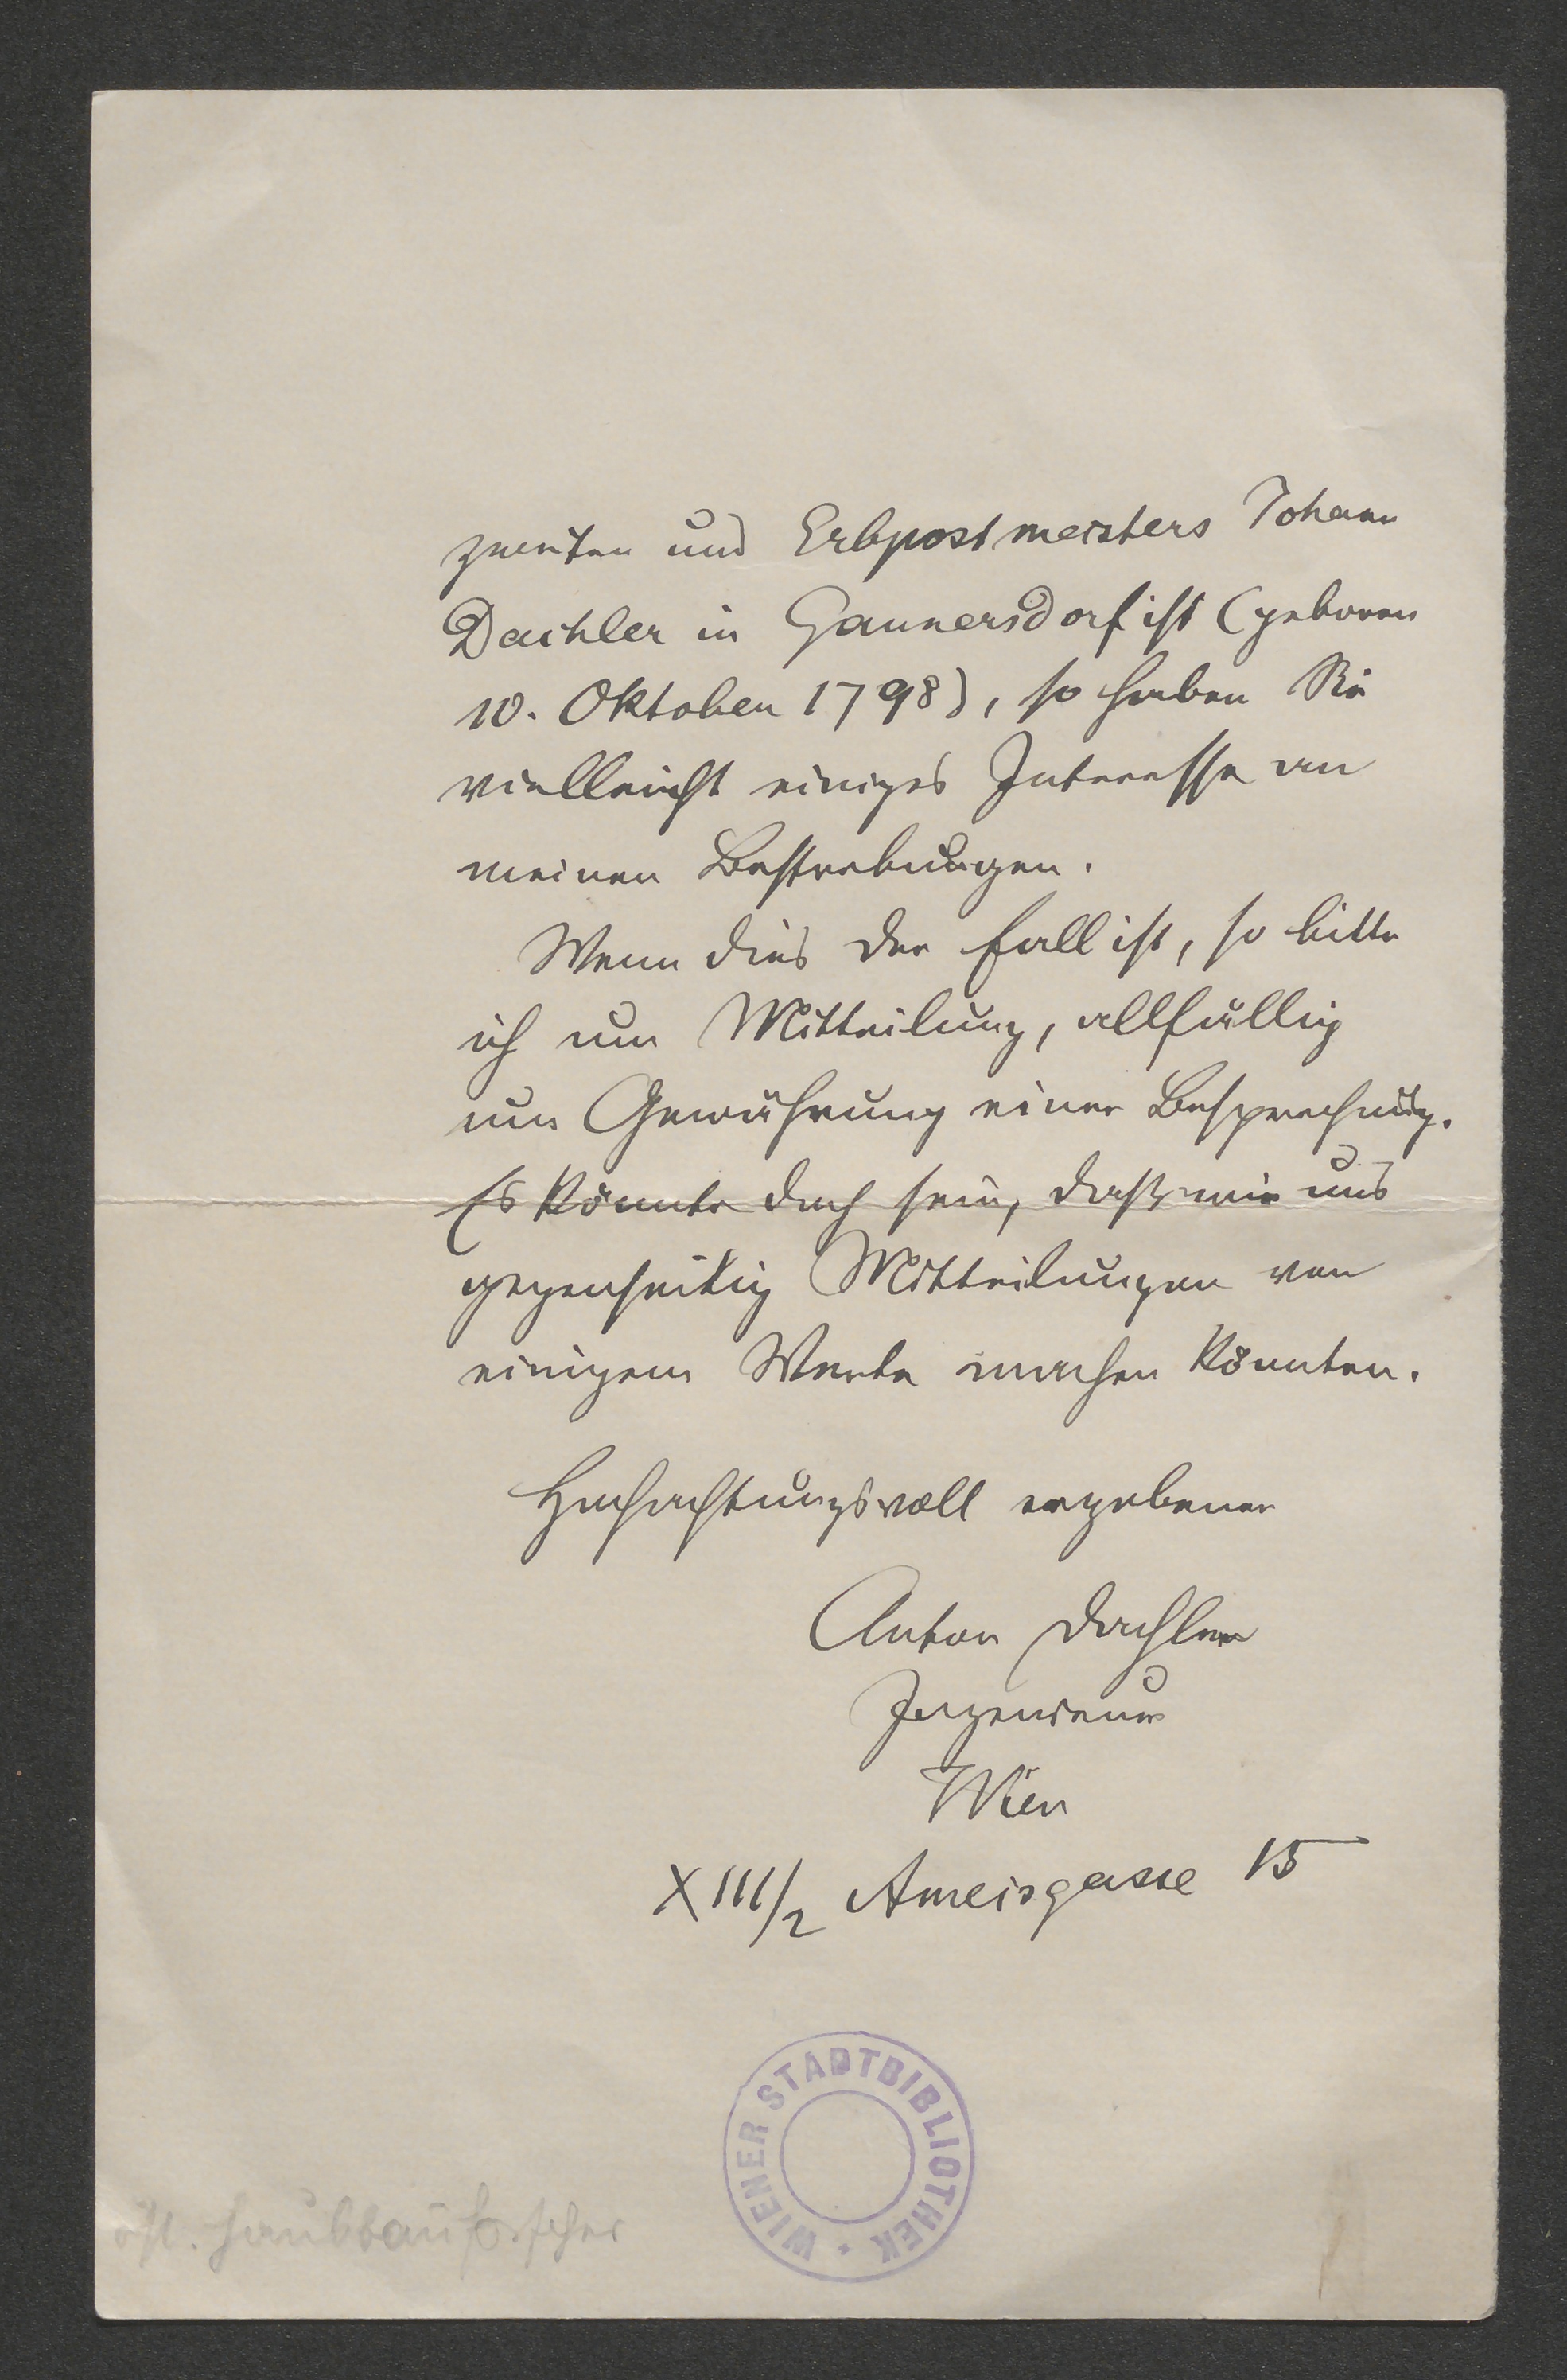 zweiten und Erbpostmeisters Johann
Dachler in Gaunersdorf ist (geboren
10. Oktober 1798), so haben Sie
vielleicht einiges Interesse an
meinen Bestrebungen.
Wenn dies der Fall ist, so bitte
ich um Mitteilung, allfällig
um Gewährung einer Besprechung.
Es könnte doch sein, daß wir uns
gegenseitig Mitteilungen von
einigem Werte machen könnten.
Hochachtungsvoll ergebener
Anton Dachler
Ingenieur
Wien
XIII/2 Ameisgasse 15
WIENER STADTBIBLIOTHEK
öst. Hausbauforscher